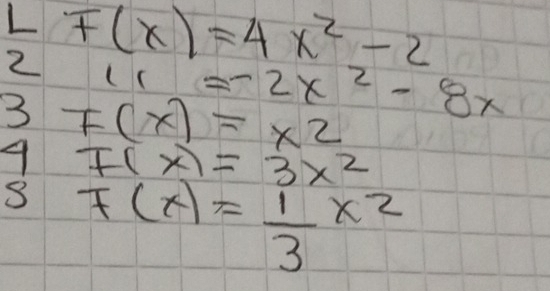 1 F(x) = 4x² - 2
2 " = -2x² - 8x
3 F(x) = x²
4 F(x) = 3x²
5 F(x) = 1/3 x²